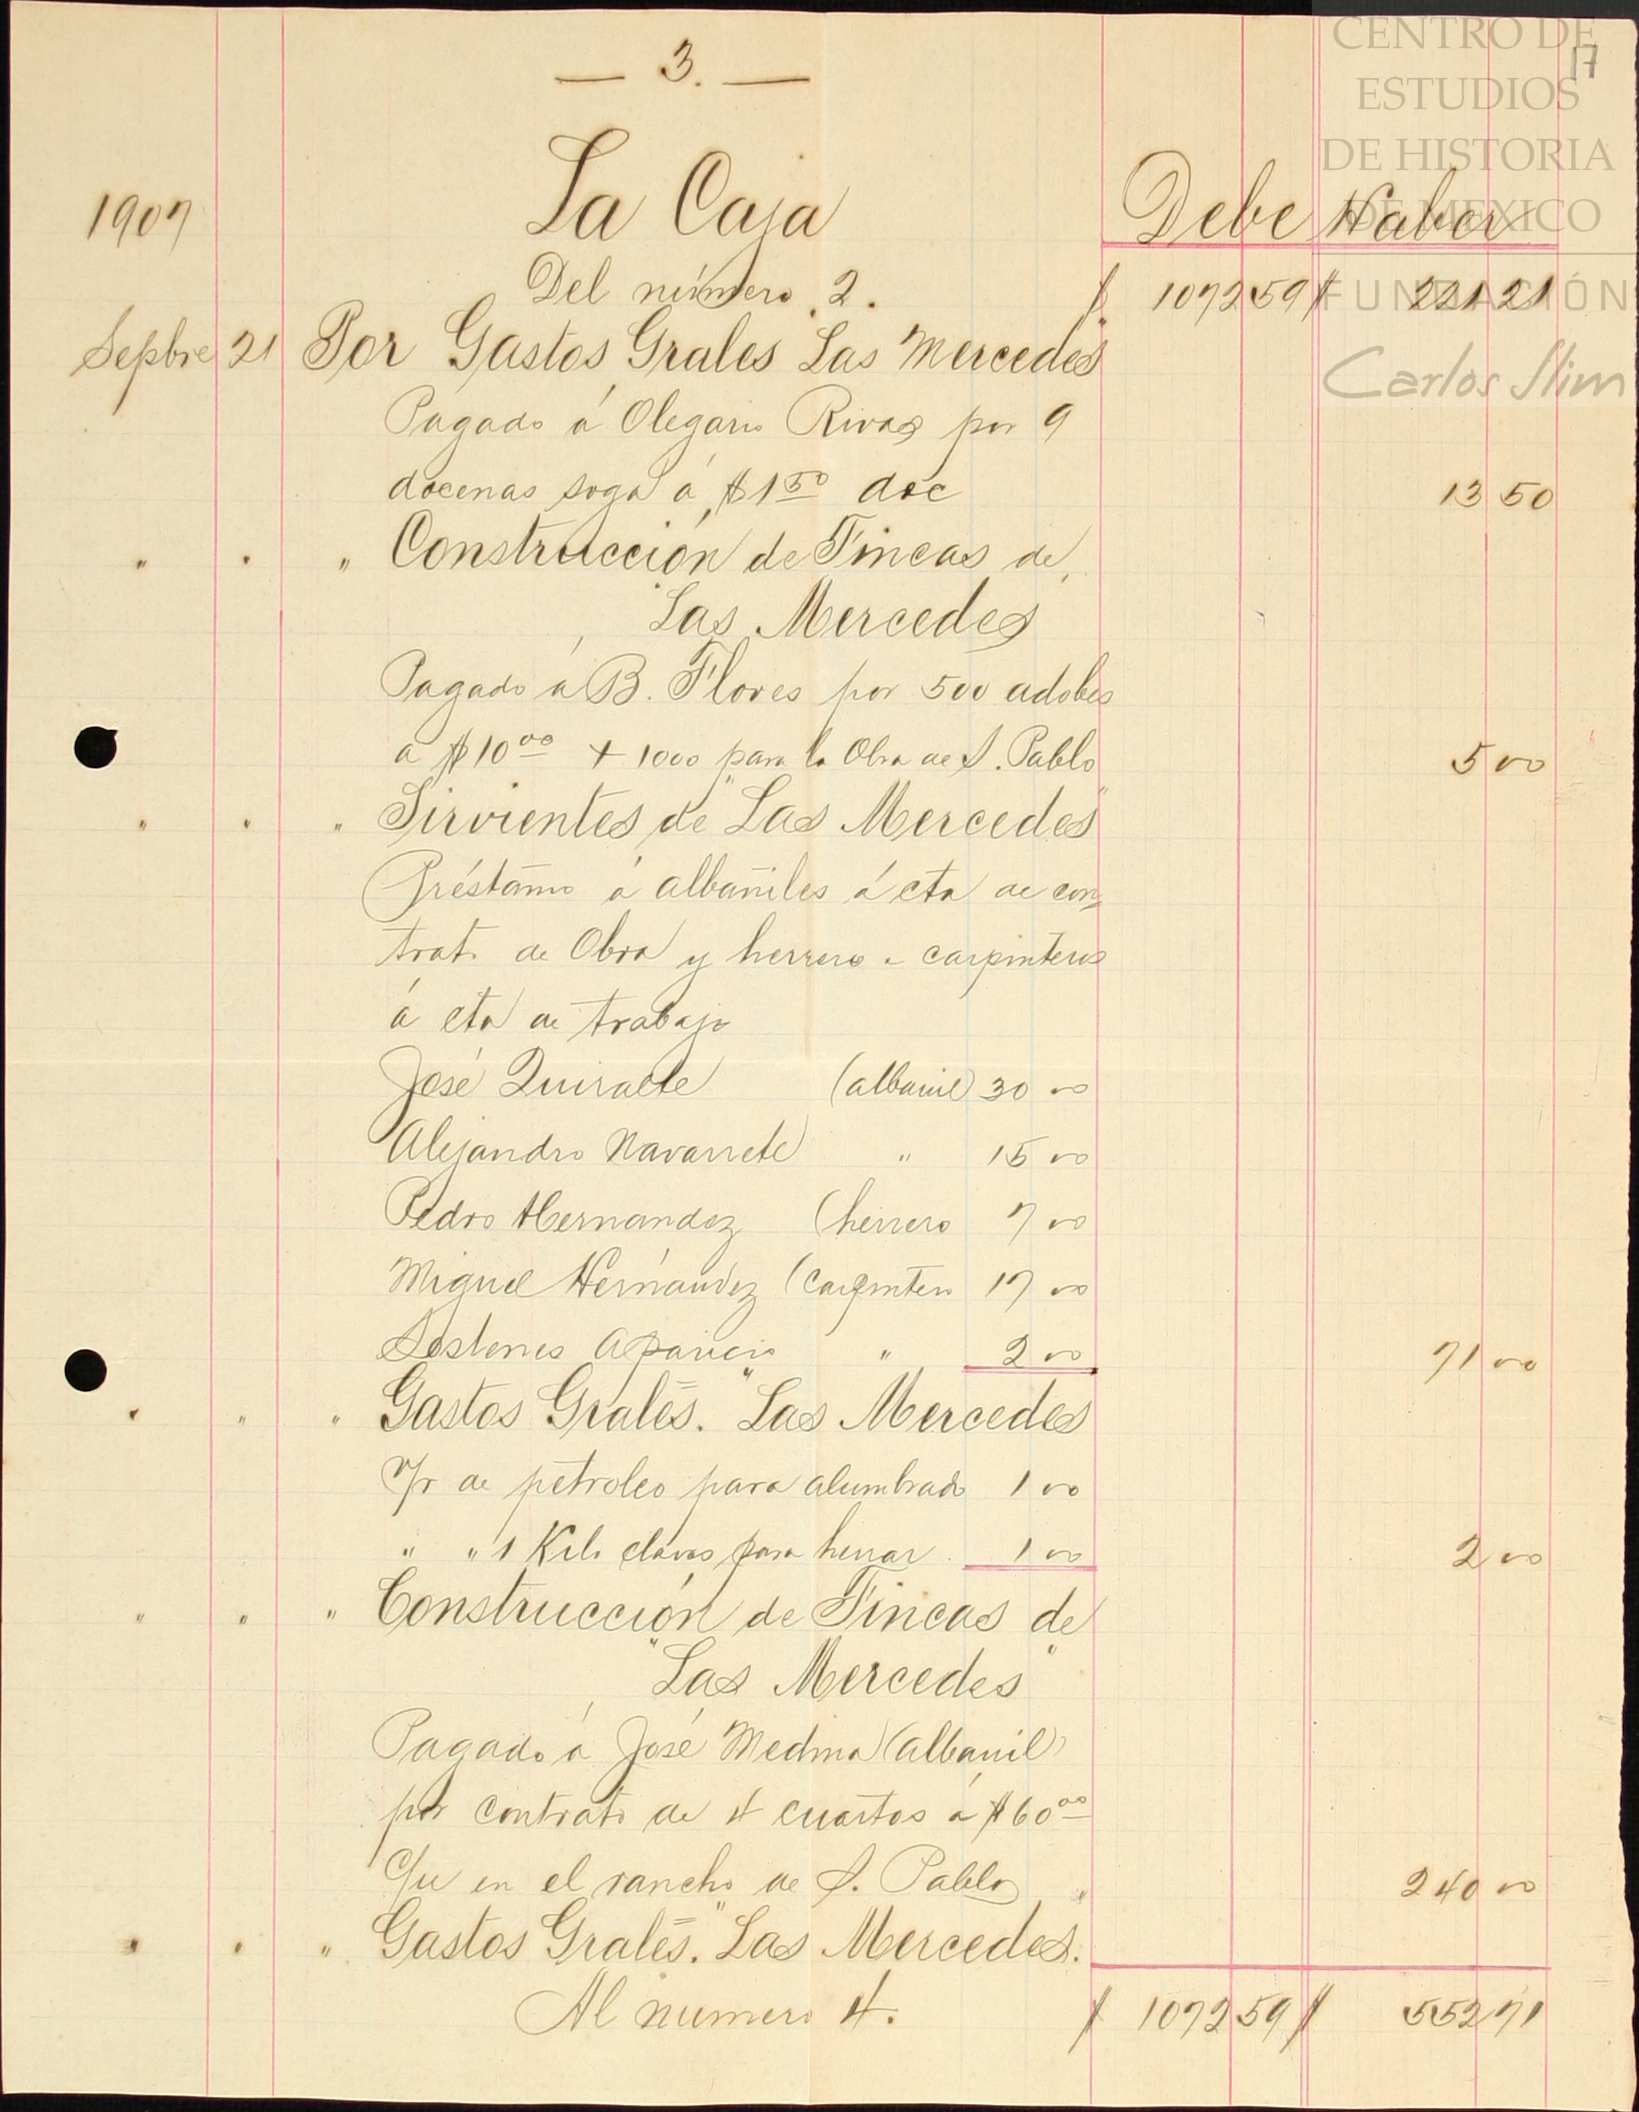 — 3. —
17
CENTRO DE
ESTUDIOS
DE HISTORIA
DE MEXICO
FUNDACIÓN
Carlos Slim
1907 La Caja Debe Haber
Del número 2. $ 1072 59 $ 221 21
Sepbre 21 Por Gastos Grales "Las Mercedes"
Pagado á Olegario Rivas por 9
docenas soga á $1 50 doc 13 50
" " " Construcción de Fincas de
"Las Mercedes
Pagado á B. Flores por 500 adobes
a $10 00 + 1000 para la Obra de S. Pablo 5 00
" " " Sirvientes de "Las Mercedes"
Préstamo á albañiles á cta de con=
trato de Obra y herrero - carpinteros
á cta de trabajo
José Quiraete (albanil) 30 00
Alejandro Navarrete " 15 00
Pedro Hernandez (herrero 7 00
Miguel Hernández (Carpintero 17 00
Sostenes Aparicio " 2 00 71 00
" " " Gastos Grales. "Las Mercedes
V/r de petroleo para alumbrado 1 00
" " 1 Kilo clavos para herrar 1 00 2 00
" " " Construcción de Fincas de
"Las Mercedes"
Pagado á José Medina (albanil)
por contrato de 4 cuartos á $60 00
C/u en el rancho de S. Pablo 240 00
" " " Gastos Grales. "Las Mercedes".
Al numero 4. $ 1072 59 $ 552 71